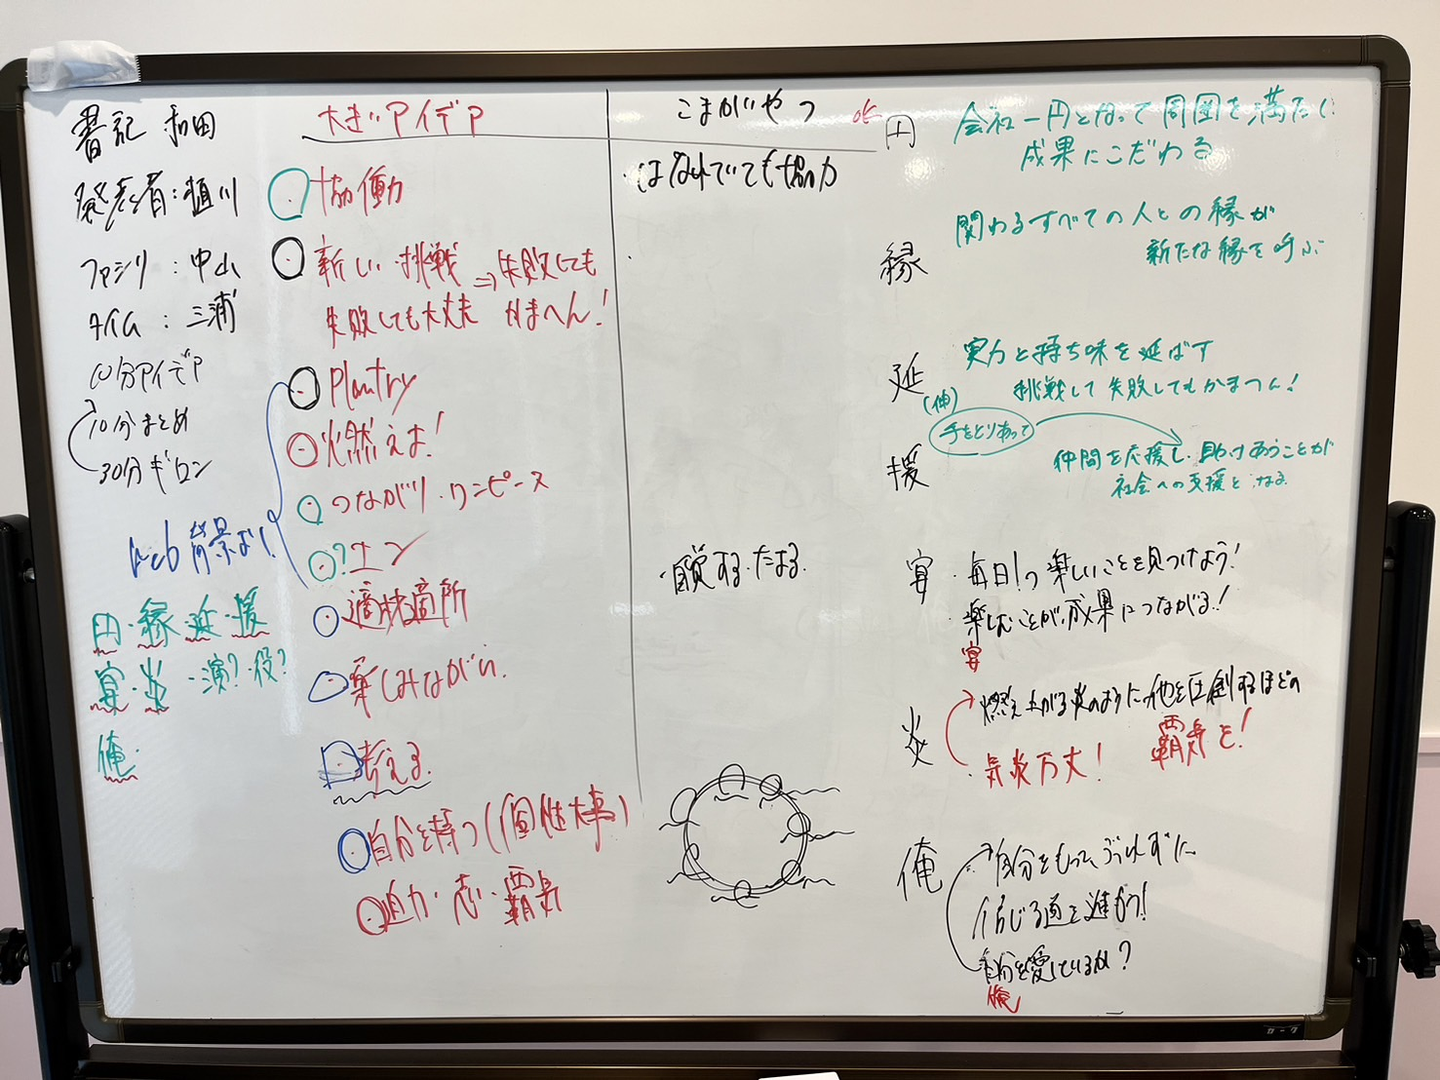 書記 和田
発表者:植川
ファシリ:中山
タイム:三浦
10分アイデア
10分まとめ
30分ギロン
web 背景
円・縁 延・援
宴・炎・演?役?
俺
大きいアイデア
協働
新しい挑戦 ⇒ 失敗しても
失敗しても大丈夫 かまへん!
Plantry
火燃えよ!
つながり・ワンピース
?エン
適材適所
楽しみながら
考える
自分を持つ(個性大事)
迫力・志・覇気
こまかいやつ
・はなれていても協力
・自覚する・
OK
円
会社一円となって周囲を満たし
成果にこだわる
縁
関わるすべての人との縁が
新たな縁を呼ぶ
延
(伸)
実力と持ち味を延ばす
挑戦して失敗してもかまへん!
援
手をとりあって
仲間を応援し、助けあうことが
社会への支援となる
宴
・毎日1つ楽しいことを見つけよう!
楽しむことが、成果につながる!
宴
炎
燃え上がる炎のように、他を圧倒するほどの
・気炎万丈! 覇気を!
俺
・自分をもって、ぶれずに
信じる道を進もう!
自分を愛しているか?
俺